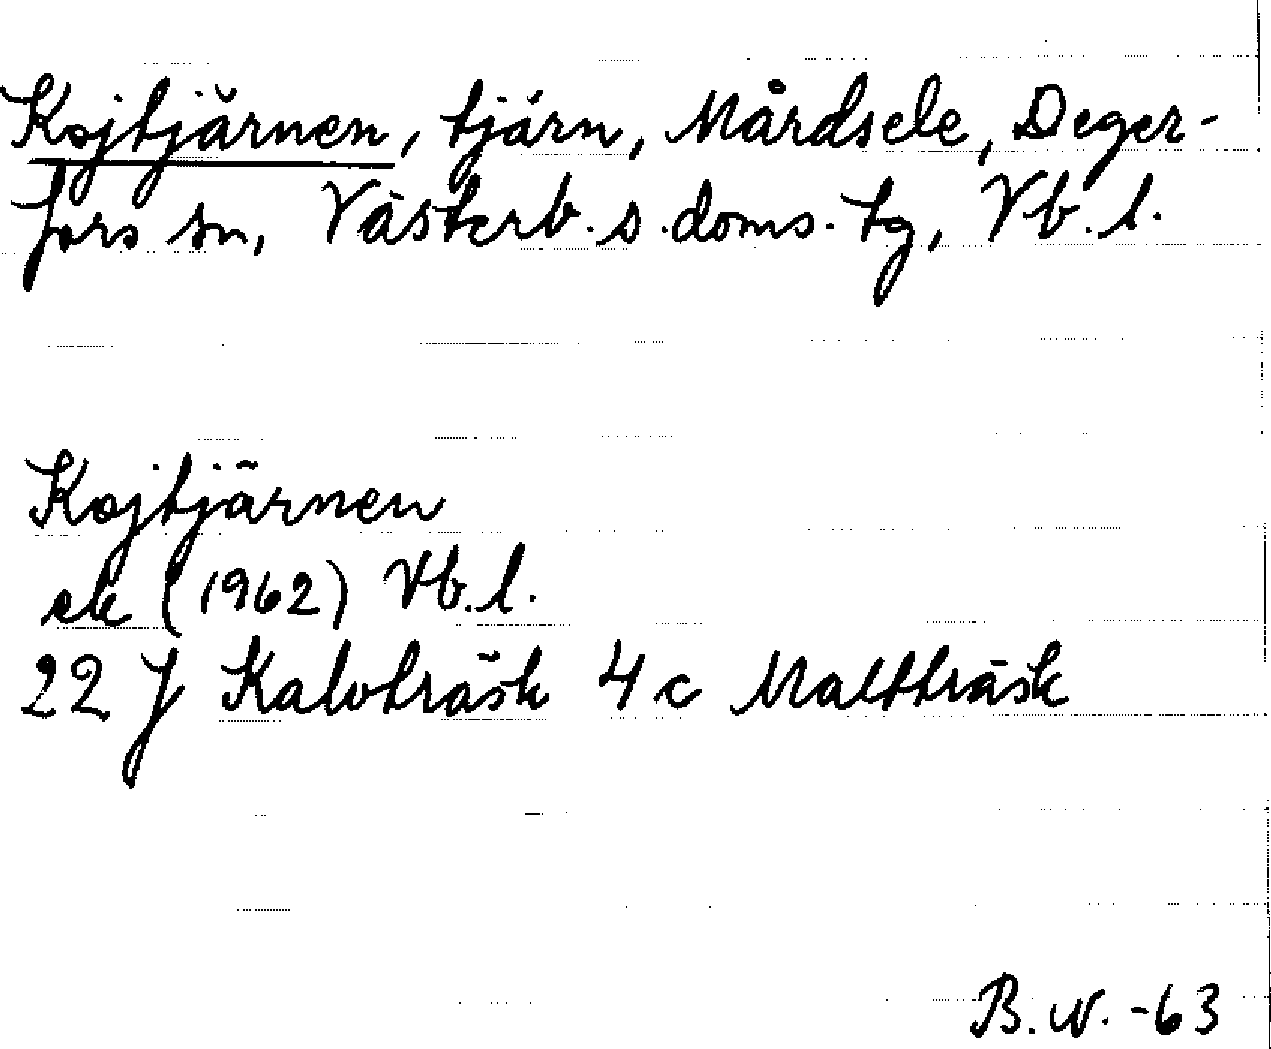 Kojtjärnen, tjärn, Mårdsele, Deger-
fors sn, Västerb. s. doms. tg, Vb. l.
Kojtjärnen
ek (1962) Vb. l.
22 J Kalvträsk 4 c Maltträsk
B. W. -63